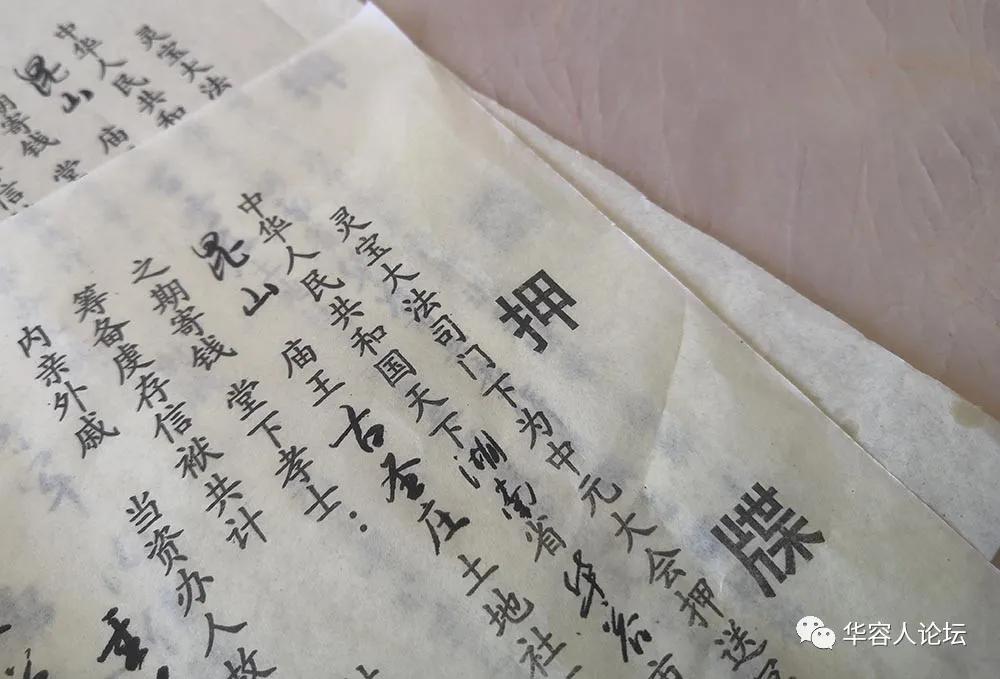 押牒
灵宝大法司门下为中元大会押送
中华人民共和国天下湖南省华容市
昆山 庙王古圣庄土地社
之期寄钱 堂下孝士：
筹备虔存信袱共计
内亲外戚 当资办人故
灵宝大法
中华人民共和
昆山 庙
期寄钱 堂
信
华容人论坛